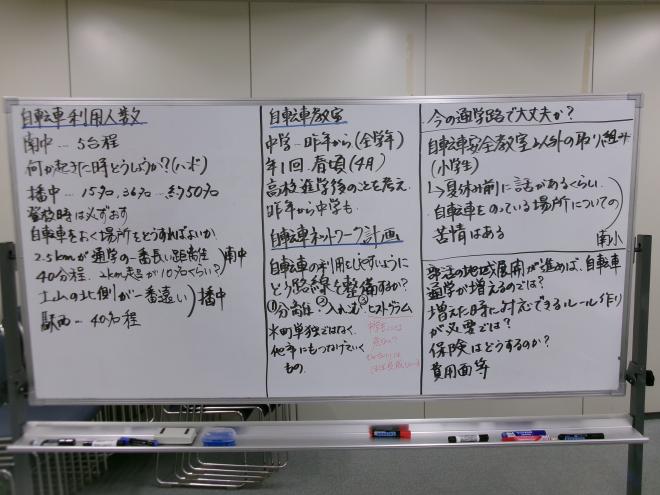 自転車利用人数
南中 … 5台程
何か起きた時どうしようか?(ハード)
播中 … 15%、36%、… 約50%
登校時は必ずおす
自転車をおく場所をどうすればよいか
2.5kmが通学の一番長い距離
40分程、2km 10%くらい?
南中
の北側が一番遠い
播中
… 40%程
自転車教室
中学…昨年から(全学年)
年1回、春頃(4月)
高校進学後のことを考え、
昨年から中学も
自転車ネットワーク計画
自転車の利用をしやすいように
どう路線を整備するか?
①分離 ②入れ ③ピクトグラム
本町単独ではなく、
他市にもつなげていく
もの。
今の通学路で大丈夫か?
自転車安全教室以外の取り組み
(小学生)
↳夏休み前に話があるくらい。
自転車をのっている場所についての
苦情はある
南小
部活の地域展開が進めば、自転車
通学が増えるのでは?
増えた時に対応できるルール作り
が必要では?
保険はどうするのか?
費用面等